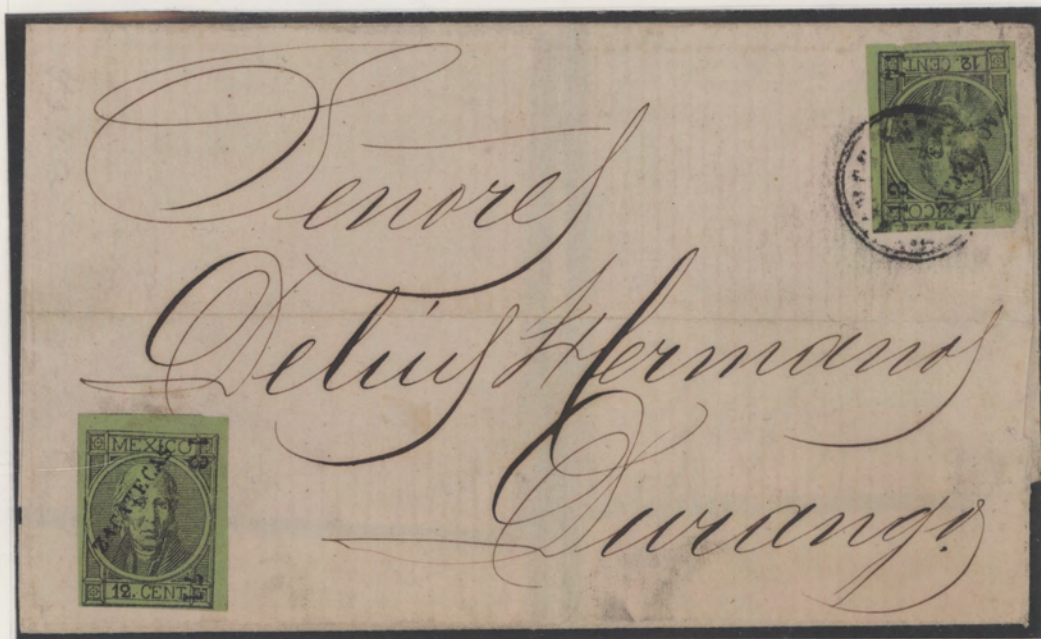 12. CENT
MEXICO
Señores
Delius Hermanos
Durango.
MEXICO
ZACATECAS
12. CENT